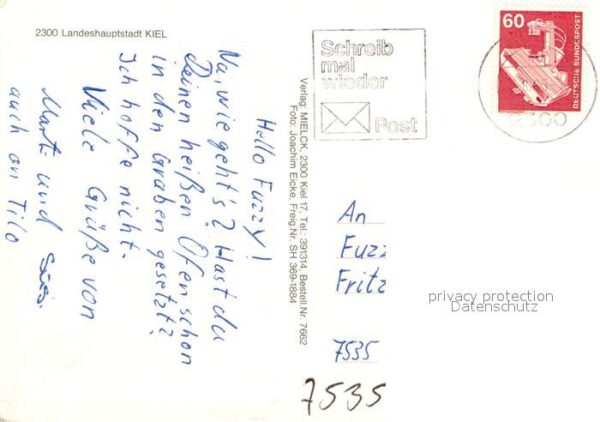 2300 Landeshauptstadt KIEL
Hello Fuzzy!
Na, wie geht's? Hast du
Deinen heißen Ofen schon
in den Graben gesetzt?
Ich hoffe nicht.
Viele Grüße von
und
auch an Tilo
Verlag: MIELCK, 2300 Kiel 17, Tel.: 391314, Bestell.Nr. 7662
Foto: Joachim Eicke, Freig.Nr. SH 369-1884
Schreib
mal
wieder
Post
60
DEUTSCHE BUNDESPOST
2300
An
Fuzz
Fritz
privacy protection
Datenschutz
7535
7535